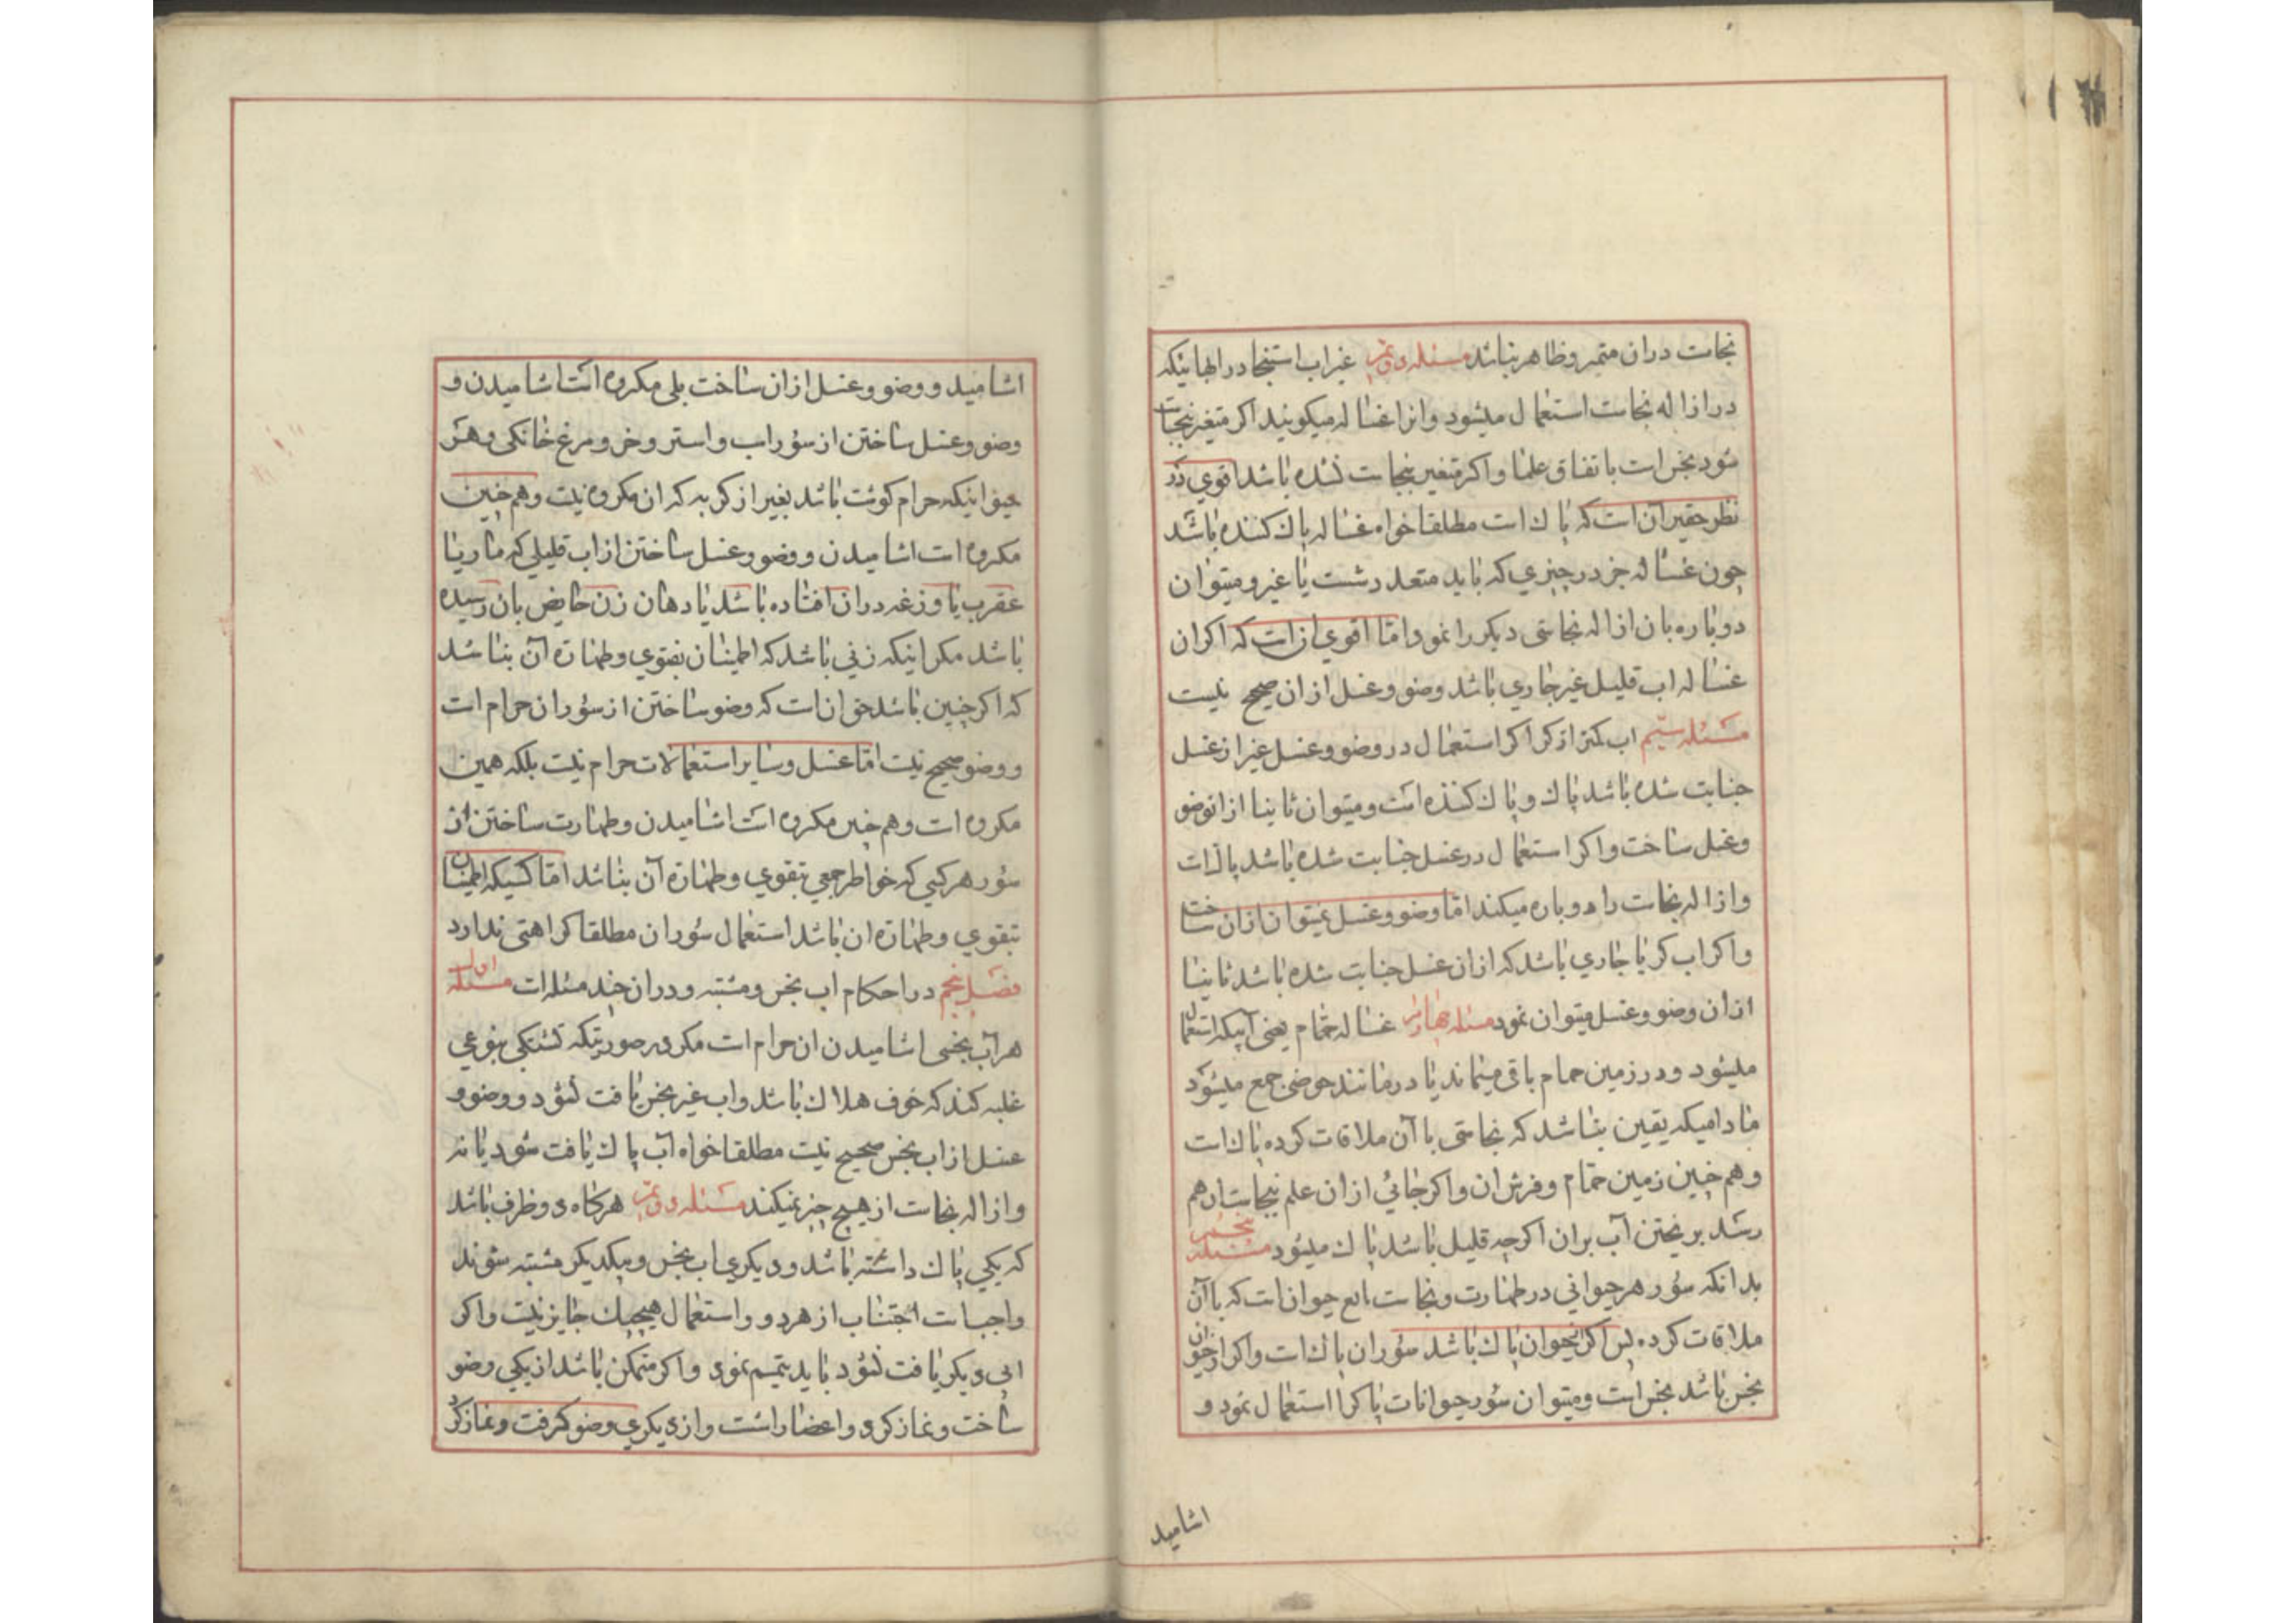 نجاست دران متمر و ظاهر نباشد مسئله دویّم غیر اب استنجا در ابهائیکه
در ازاله نجاست استعمال میشود و انرا غساله میکویند اکر متغیر بنجاست
شود نجس است باتفاق علما و اکر متغیر بنجاست نشده باشد اقوی در
نظر حقیر آن است که پاک است مطلقا خواه غساله پاک کننده باشد
چون غساله جزء در چیزی که باید متعدد شست یا غیر و میتوان
دوباره بان ازاله نجاستی دیکر را نمود امّا اقوی ان است که اکر ان
غساله اب قلیل غیر جاری باشد وضو و غسل از ان صحیح نیست
مسئله سیّم اب کمتر از کر اکر استعمال در وضو و غسل غیر از غسل
جنابت شده باشد پاک و پاک کننده است و میتوان ثانیا از ان وضو
و غسل ساخت و اکر استعمال در غسل جنابت شده باشد پاک است
و ازاله نجاست را دوباره میکند امّا وضو و غسل نمیتوان از ان ساخت
و اکر اب کر یا جاری باشد که از ان غسل جنابت شده باشد ثانیا
از ان وضو و غسل میتوان نمود مسئله چهارم غساله حمّام یعنی آبیکه استعمال
میشود و در زمین حمام باقی میماند یا در مانند حوضی جمع میشود
مادامیکه یقین نباشد که نجاستی با آن ملاقات کرده پاک است
و هم چنین زمین حمّام و فرش ان و اکر جائی از ان علم بنجاست ان هم
رسد بریختن آب بران اکرچه قلیل باشد پاک میشود مسئله پنجم
بدانکه سؤر هر حیوانی در طهارت و نجاست تابع حیوان است که با آن
ملاقات کرده پس اکر انحیوان پاک باشد سؤر ان پاک است و اکر ان حیوان
نجس باشد نجس است و میتوان سؤر حیوانات پاکرا استعمال نمود و
اشامید
اشامید و وضو و غسل از ان ساخت بلی مکروه است اشامیدن و
وضو و غسل ساختن از سؤر اسب و استر و خر و مرغ خانکی و هر
حیوانیکه حرام کوشت باشد بغیر از کربه که ان مکروه نیست و هم چنین
مکروه است اشامیدن و وضو و غسل ساختن از اب قلیلی که مار یا
عقرب یا وزغه دران افتاده باشد یا دهان زن حایض بان رسیده
باشد مکر اینکه زنی باشد که اطمینان بتقوی و طهارة آن نباشد
که اکر چنین باشد خوان است که وضو ساختن از سؤر ان حرام است
و وضو صحیح نیست امّا غسل و سایر استعمالات حرام نیست بلکه همین
مکروه است و هم چنین مکروه است اشامیدن و طهارت ساختن از
سؤر هر کسی که خواطر جمعی بتقوی و طهارة آن نباشد امّا کسیکه اطمینان
بتقوی و طهارة ان باشد استعمال سؤر ان مطلقا کراهتی ندارد
فصل پنجم در احکام اب نجس و مشتبه و دران چند مسئله است مسئله اول
هر آب نجسی اشامیدن ان حرام است مکر در صورتیکه تشنکی بنوعی
غلبه کند که خوف هلاک باشد و اب غیر نجس یافت نشود و وضو و
غسل از اب نجس صحیح نیست مطلقا خواه آب پاک یافت شود یا نه
و ازاله نجاست از هیچ چیز نمیکند مسئله دویّم هرکاه دو ظرف باشد
که یکی پاک داشته باشد و دیکری اب نجس و بیکدیکر مشتبه شوند
واجب است اجتناب از هر دو و استعمال هیچیک جایز نیست و اکر
ابی دیکر یافت نشود باید تیمم نمود و اکر متمکن باشد از یکی وضو
ساخت و نماز کرد و اعضا را شست و از دیکری وضو کرفت و نماز کرد